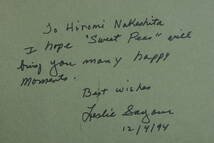 To Hiromi Nakashita
I hope "Sweet Pea" will
bring you many happy
moments.
Best wishes
Leslie
12/4/94